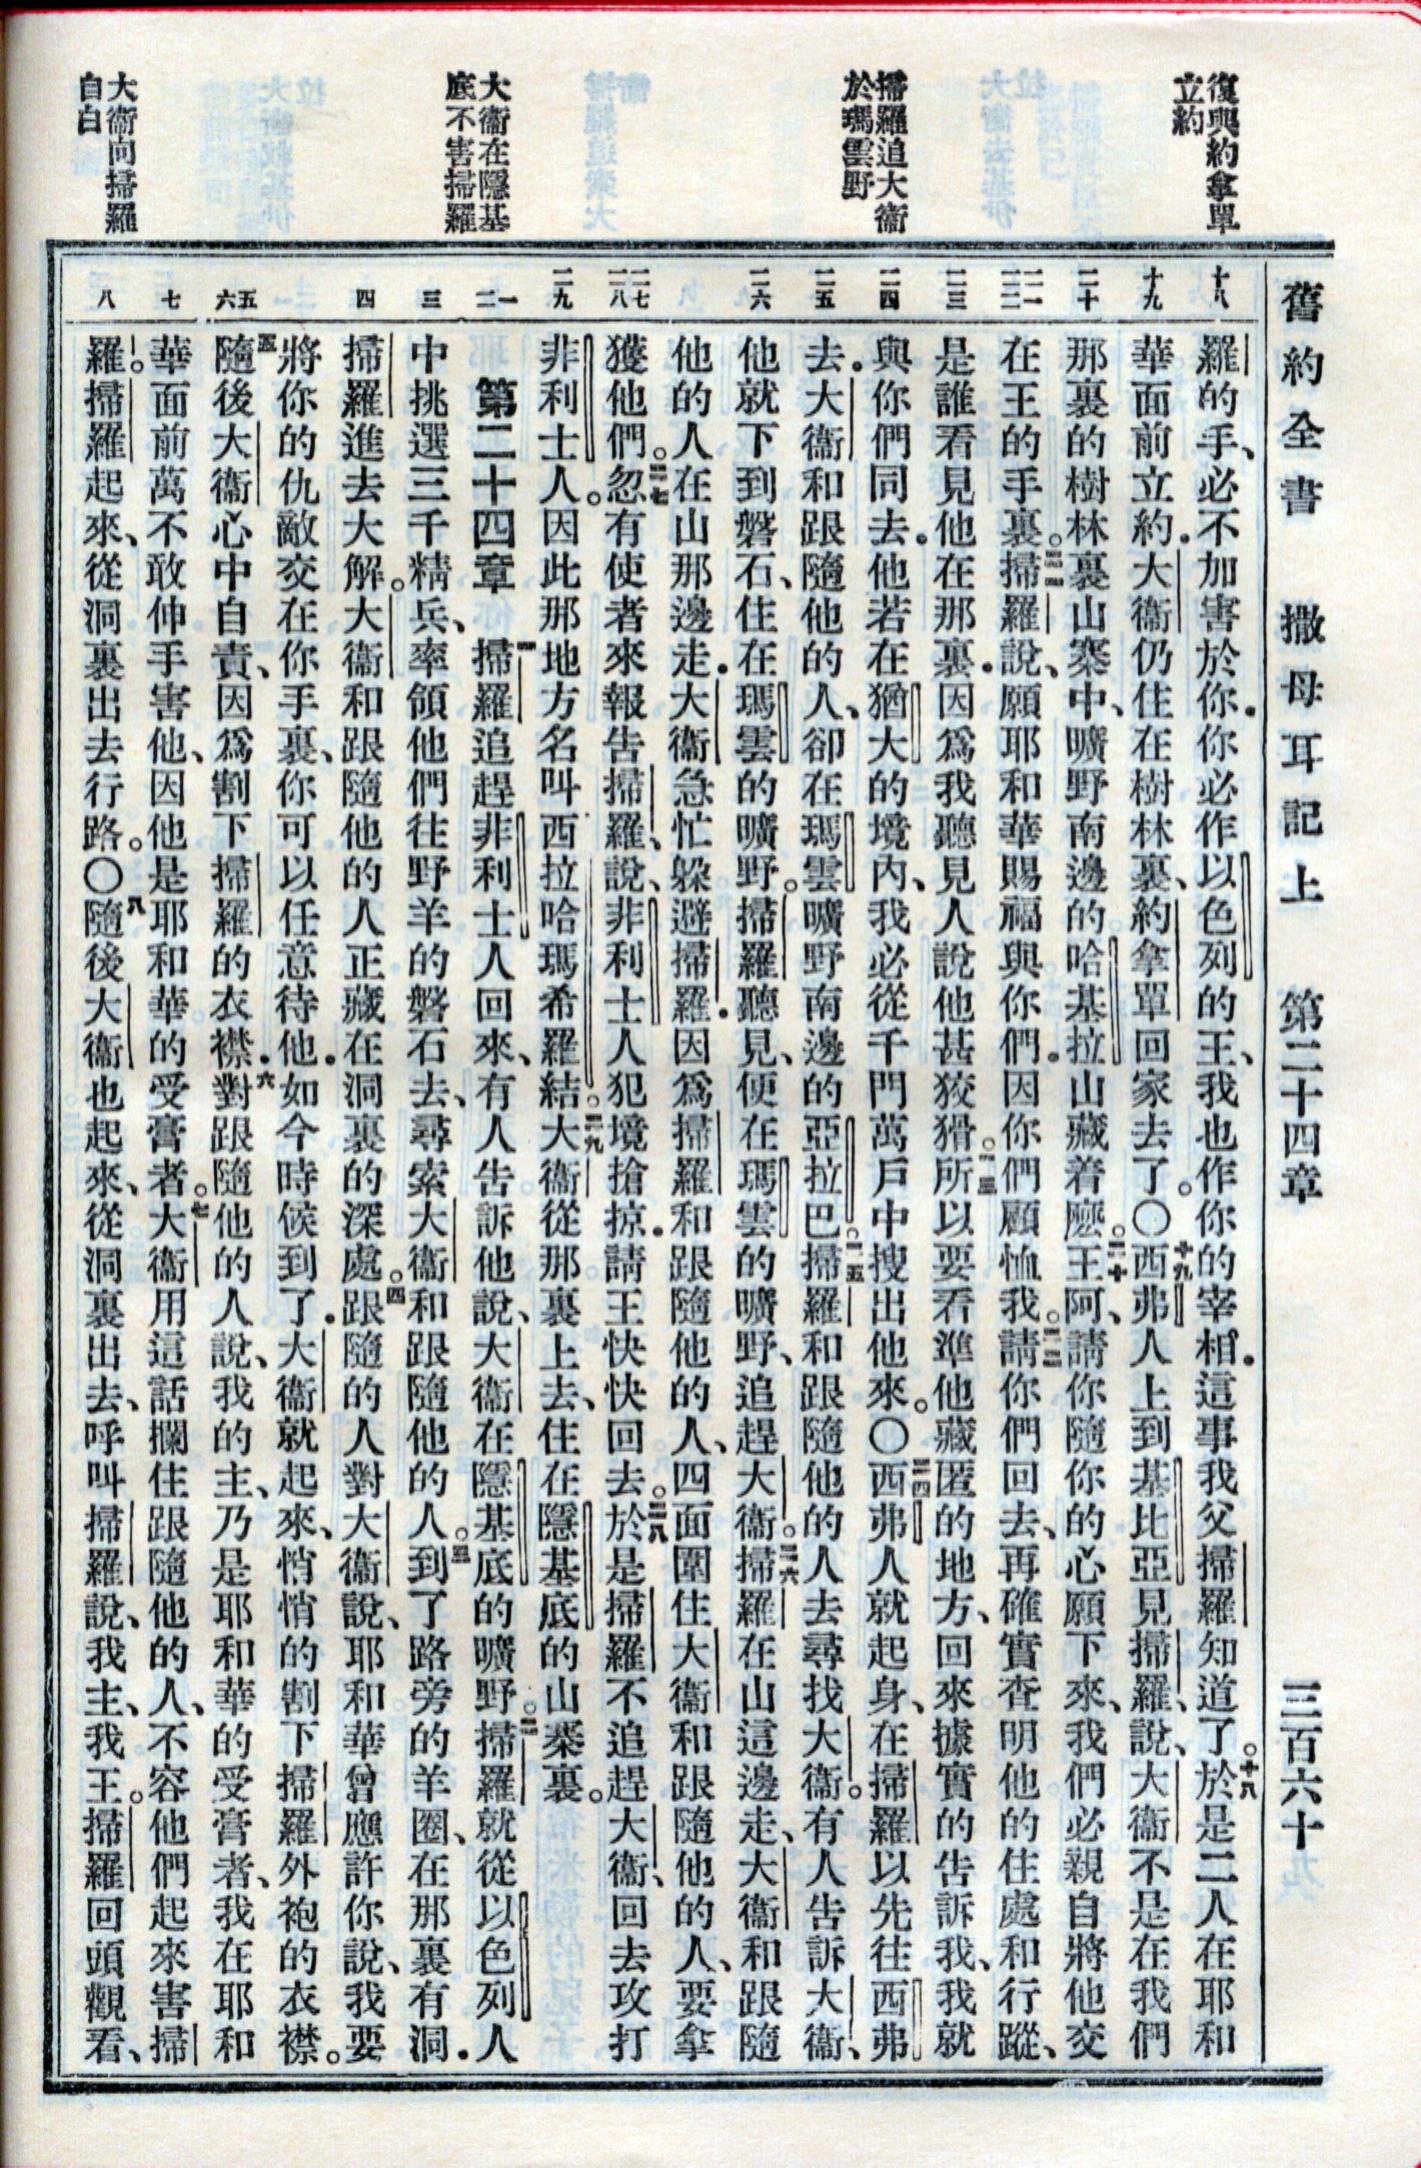 復與約拿單
立約
掃羅追大衞
於瑪雲野
大衞在隱基
底不害掃羅
大衞向掃羅
自白
舊約全書 撒母耳記上 第二十四章 三百六十
十八
羅的手、必不加害於你．你必作以色列的王、我也作你的宰相．這事我父掃羅知道了。十八於是二人在耶和
十九
華面前立約．大衞仍住在樹林裏、約拿單回家去了。〇十九西弗人上到基比亞見掃羅、說、大衞不是在我們
二十
那裏的樹林裏山寨中、曠野南邊的哈基拉山藏着麽。二十王阿、請你隨你的心願下來、我們必親自將他交
二一
二二
在王的手裏。二一掃羅說、願耶和華賜福與你們．因你們顧恤我。二二請你們回去、再確實查明他的住處和行蹤、
二三
是誰看見他在那裏．因爲我聽見人說他甚狡猾。二三所以要看準他藏匿的地方、回來據實的告訴我、我就
二四
與你們同去．他若在猶大的境內、我必從千門萬戶中搜出他來。〇二四西弗人就起身、在掃羅以先往西弗
二五
去．大衞和跟隨他的人、卻在瑪雲曠野南邊的亞拉巴。二五掃羅和跟隨他的人去尋找大衞。有人告訴大衞、
二六
他就下到磐石、住在瑪雲的曠野。掃羅聽見、便在瑪雲的曠野、追趕大衞。二六掃羅在山這邊走、大衞和跟隨
他的人在山那邊走．大衞急忙躱避掃羅．因爲掃羅和跟隨他的人、四面圍住大衞和跟隨他的人、要拿
二七
二八
獲他們。二七忽有使者來報告掃羅、說、非利士人犯境搶掠．請王快快回去。二八於是掃羅不追趕大衞、回去攻打
二九
非利士人。因此那地方名叫西拉哈瑪希羅結。二九大衞從那裏上去、住在隱基底的山寨裏。
一
二
第二十四章 一掃羅追趕非利士人回來、有人告訴他說、大衞在隱基底的曠野。二掃羅就從以色列人
三
中挑選三千精兵、率領他們往野羊的磐石去、尋索大衞和跟隨他的人。三到了路旁的羊圈、在那裏有洞．
四
掃羅進去大解。大衞和跟隨他的人正藏在洞裏的深處。四跟隨的人對大衞說、耶和華曾應許你說、我要
將你的仇敵交在你手裏、你可以任意待他．如今時候到了．大衞就起來、悄悄的割下掃羅外袍的衣襟。
五
六
五隨後大衞心中自責、因爲割下掃羅的衣襟．六對跟隨他的人說、我的主、乃是耶和華的受膏者、我在耶和
七
華面前萬不敢伸手害他、因他是耶和華的受膏者。七大衞用這話攔住跟隨他的人、不容他們起來害掃
八
羅。掃羅起來、從洞裏出去行路。〇八隨後大衞也起來、從洞裏出去、呼叫掃羅說、我主、我王。掃羅回頭觀看、